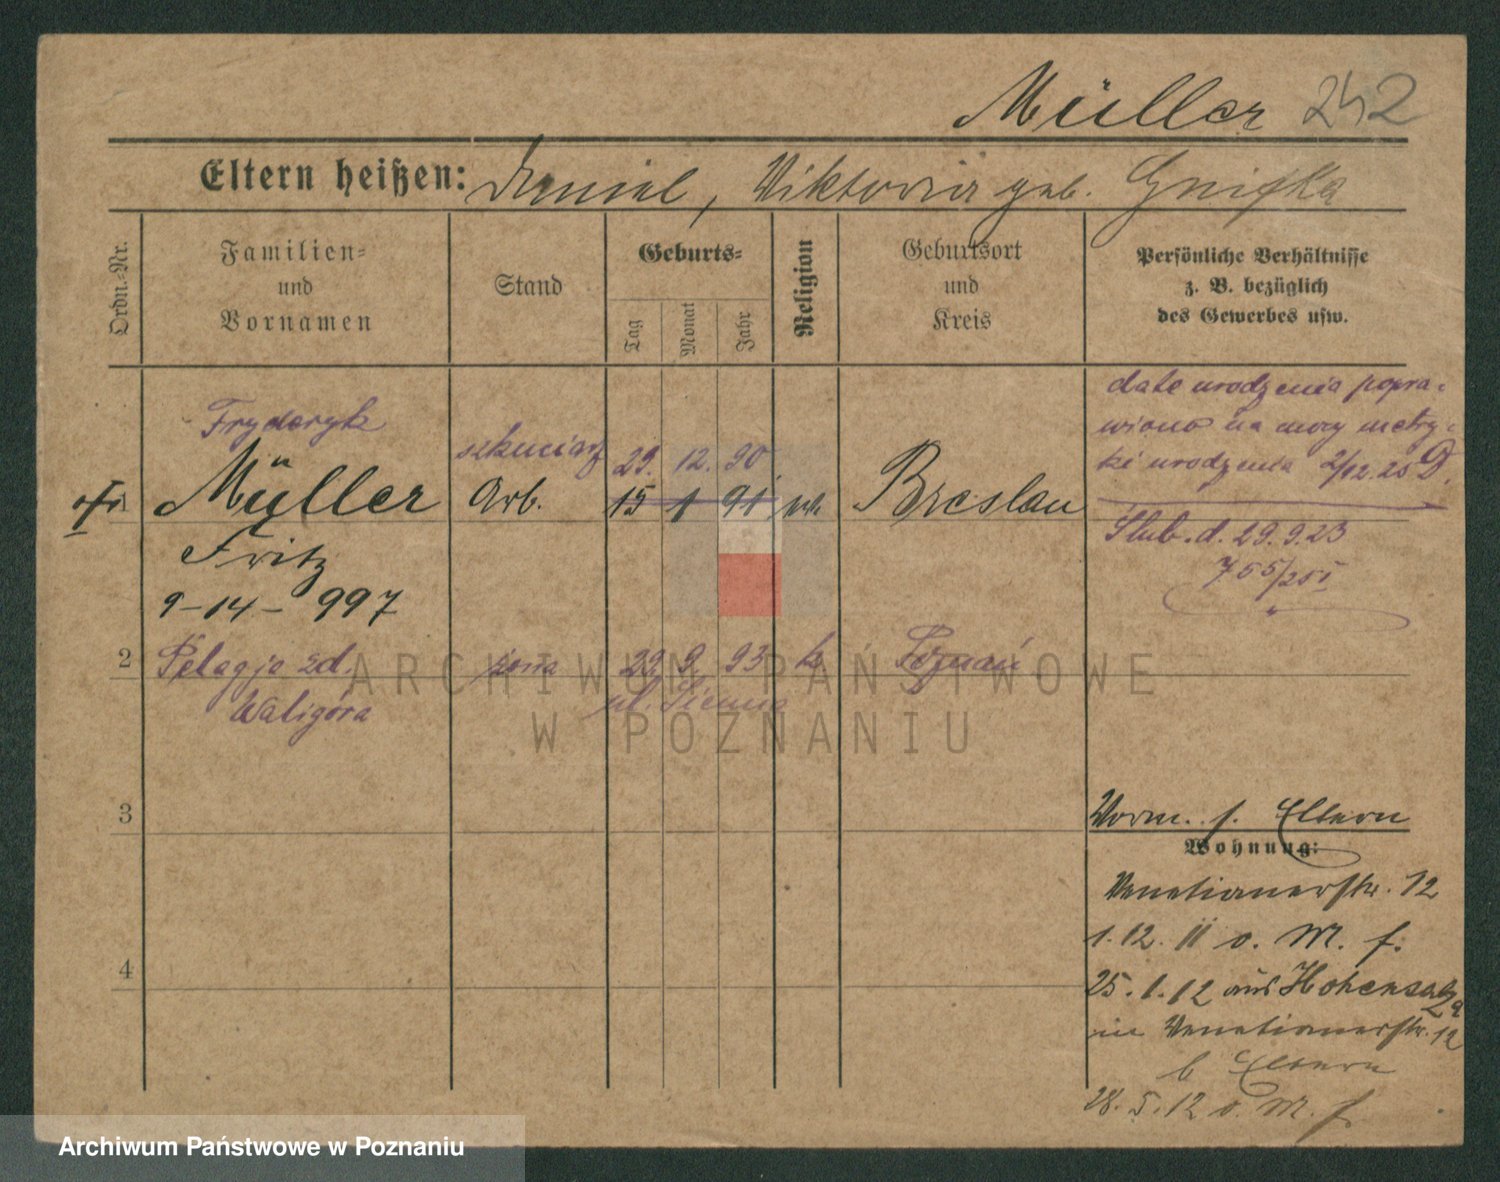 Müller 242
Eltern heißen: Daniel, Viktoria geb. Gnifka
Ordn.-Nr.
Familien-
und
Vornamen
Stand
Geburts-
Tag
Monat
Jahr
Religion
Geburtsort
und
Kreis
Persönliche Verhältnisse
z. B. bezüglich
des Gewerbes usw.
Fryderyk
Müller
Fritz
9-14-997
szkuciarz
Arb.
29. 12. 90
15 1 91
Breslau
date urodzenia popra-
wiono na mocy metry-
ki urodzenia 2/12.25
Slub. d. 29.9.23
755/25I
2
Pelagja zd.
Waligóra
żona
29. 9. 93
k
Poznań
ul. Sienna
3
4
Vorm. s. Eltern
Wohnung:
Venetianerstr. 12
1.12.11 o. M. f.
25.1.12 aus Hohensalza
in Venetianerstr. 12
b Eltern
28.5.12 o. M. f.
ARCHIWUM PAŃSTWOWE
W POZNANIU
Archiwum Państwowe w Poznaniu